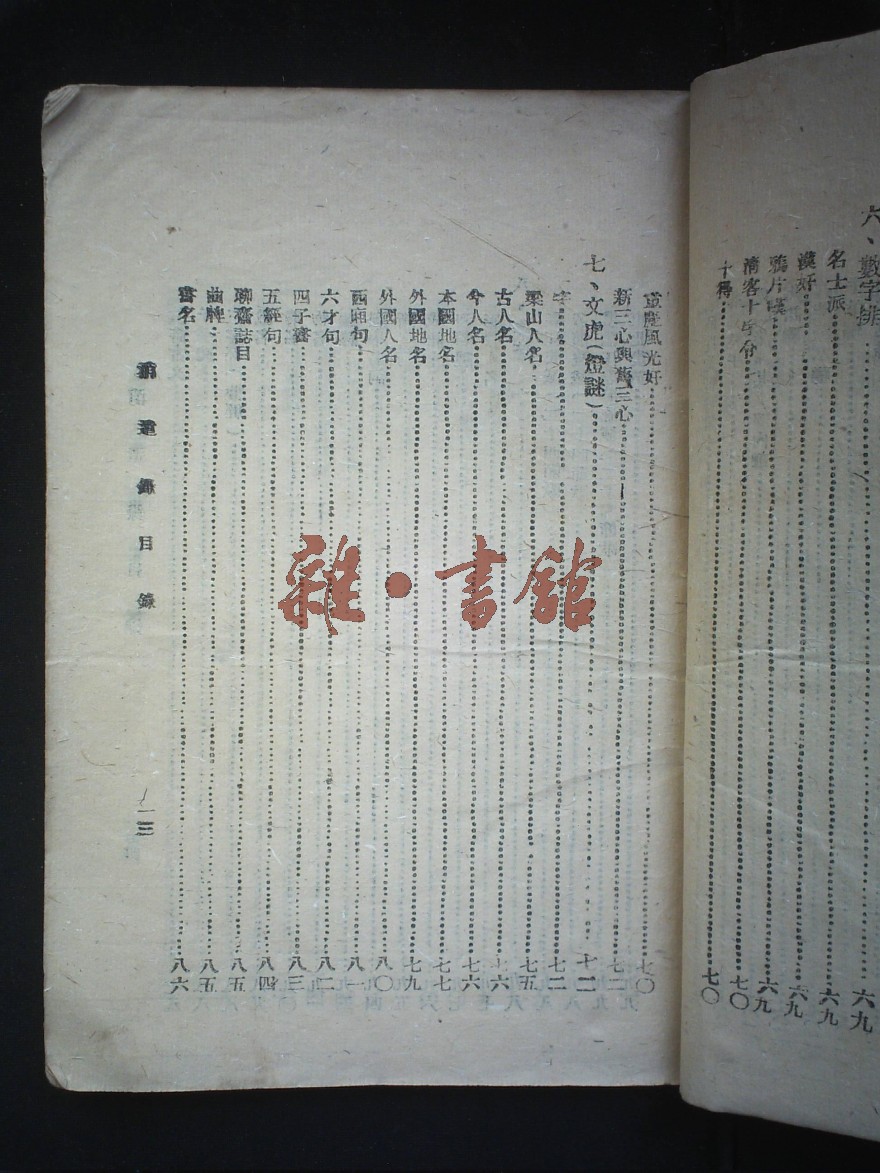 六、數字排……六九
名士派……六九
漢奸……六九
鴉片……六九
清客十字令……七〇
十得……七〇
風光好……七〇
新三心與舊三心……七二
七、文虎(燈謎)……七二
字……七二
梁山人名……七五
古人名……七六
今人名……七六
本國地名……七七
外國地名……七九
外國人名……八〇
西廂句……八一
六才句……八二
四子書……八三
五經句……八四
聊齋誌目……八五
曲牌……八五
書名……八六
目錄
一三
雜·書館